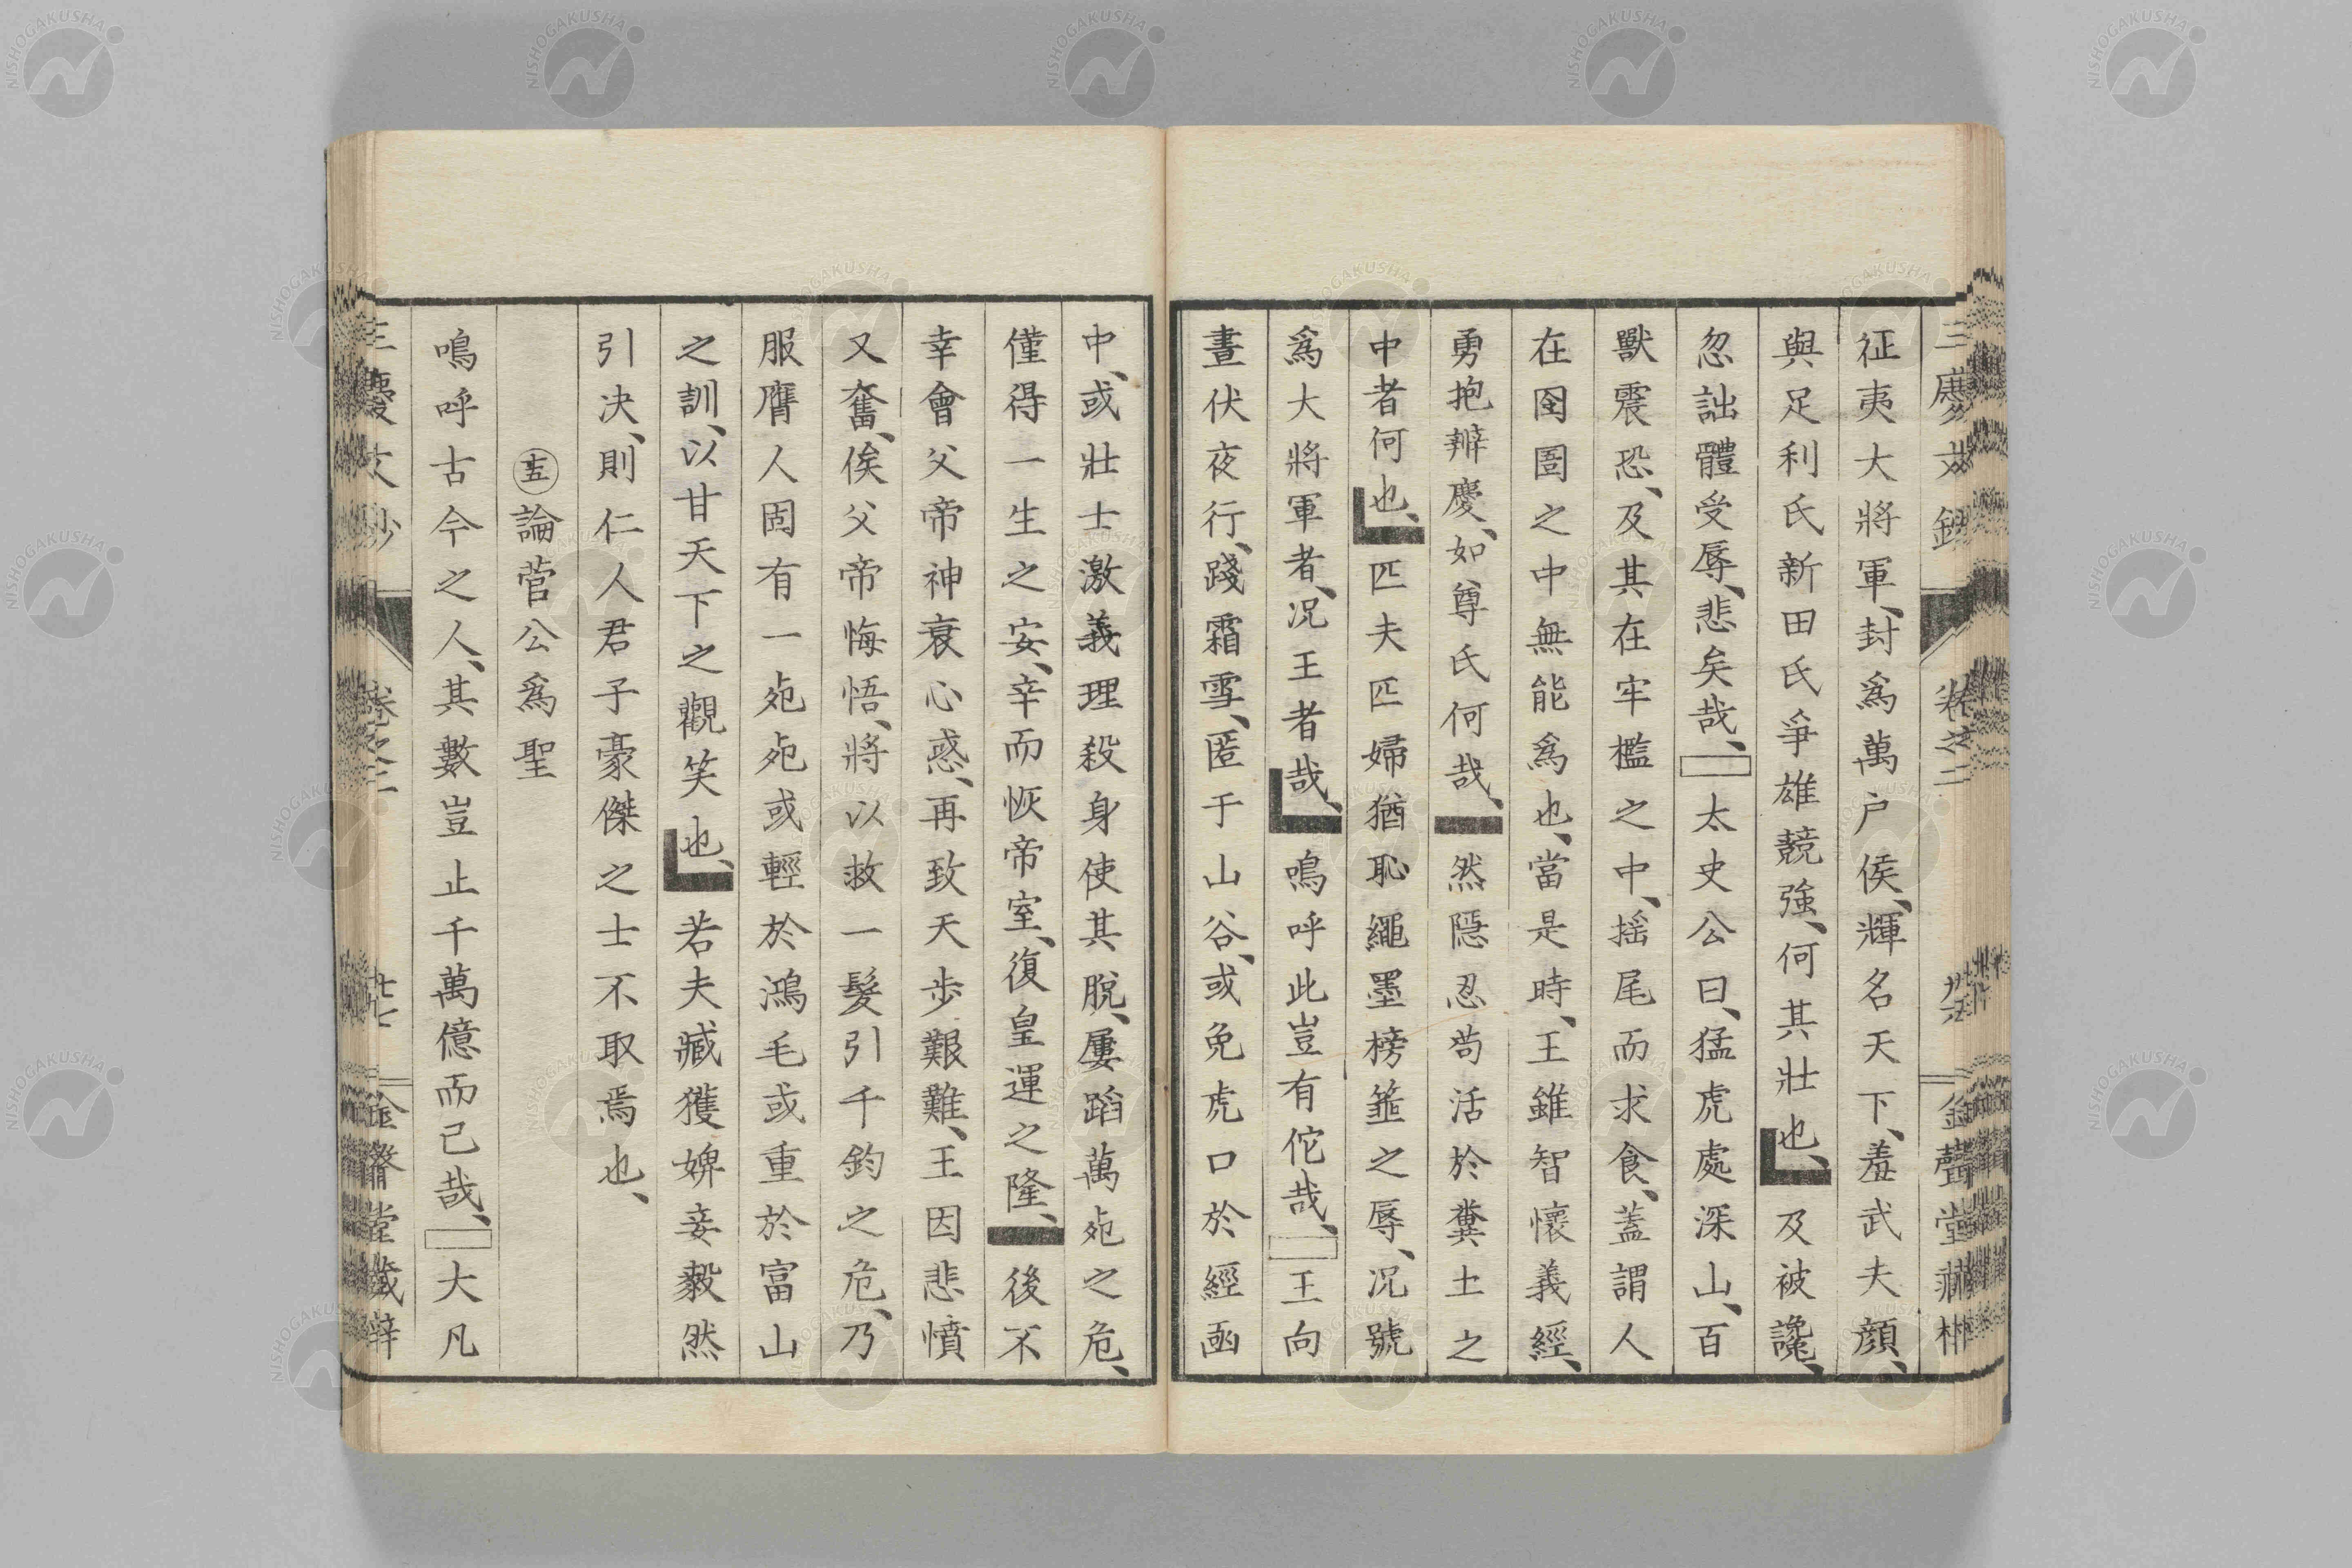 征夷大將軍、封爲萬户侯、輝名天下、羞武夫顏、
與足利氏新田氏爭雄競強、何其壯也、及被讒、
忽詘體受辱、悲矣哉、太史公曰、猛虎處深山、百
獸震恐、及其在牢檻之中、摇尾而求食、蓋謂人
在囹圄之中無能爲也、當是時、王雖智懷義經、
勇抱辨慶、如尊氏何哉、然隱忍苟活於糞土之
中者何也、匹夫匹婦猶恥繩墨榜箠之辱、况號
爲大將軍者、况王者哉、鳴呼此豈有佗哉、王向
晝伏夜行、踐霜雪、匿于山谷、或免虎口於經函
中、或壯士激義理殺身使其脫、屢蹈萬死之危、
僅得一生之安、幸而恢帝室、復皇運之隆、後不
幸會父帝神衰心惑、再致天步艱難、王因悲憤
又奮、俟父帝悔悟、將以救一髮引千鈞之危、乃
服膺人固有一死死或輕於鴻毛或重於富山
之訓、以甘天下之觀笑也、若夫臧獲婢妾毅然
引决、則仁人君子豪傑之士不取焉也、
㊄論菅公爲聖
鳴呼古今之人、其數豈止千萬億而已哉、大凡
三慶文鈔 卷之二 金聲堂藏梓
NISHOGAKUSHA